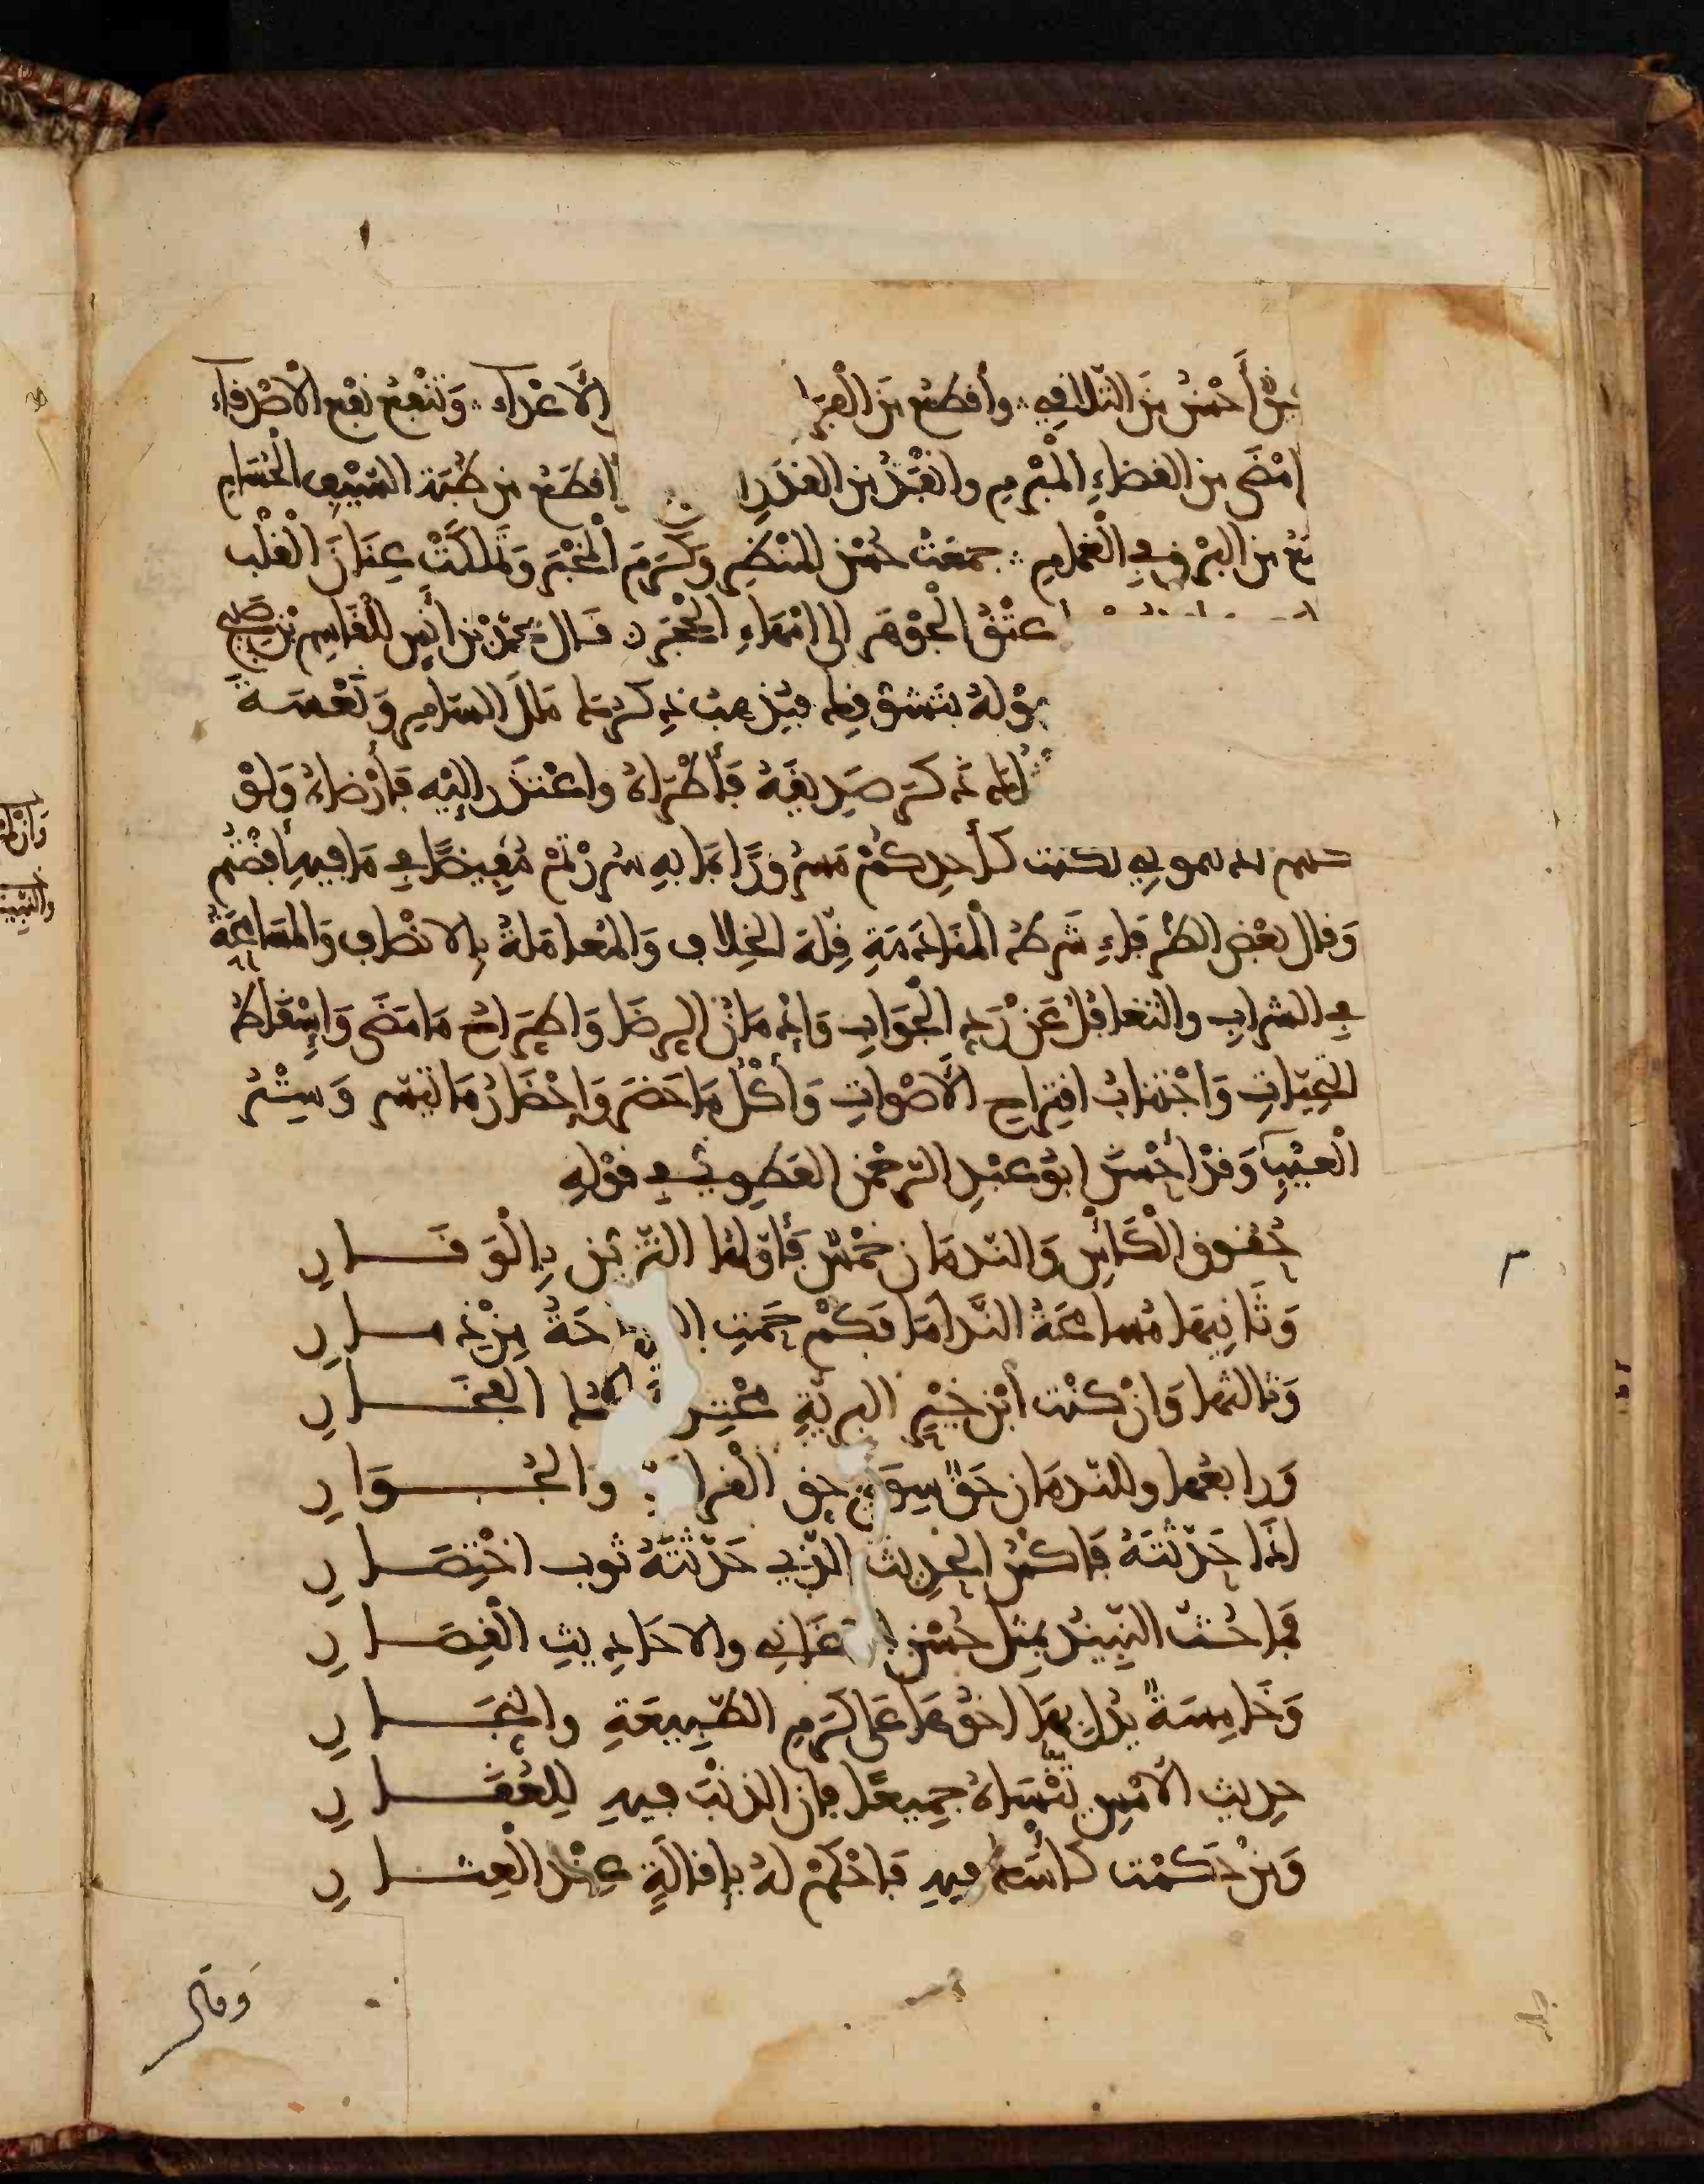 أَحْسَنُ مِنَ التَّلَاقِي ∴ وأَقْطَعُ مِنَ الْفِرَا الْأَعْدَآءِ ∴ وَتَنْفَعُ نَفْعَ الْأَصْدِقَآءِ
أَمْضَى مِنَ القضَاءِ الْمُبْرَمِ وأَنْفَذُ مِنَ القَدَرِ أَقْطَعُ مِن ظُبَةِ السَّيْفِ الْحُسَامِ
مِنَ البَرْقِ فِي الْغَمَامِ ∴ جمعَتْ حُسْنَ المَنْظَرِ وَكَرَمَ الْمَخْبَرِ وَتَمَلَّكَتْ عِنَانَ الْقَلْبِ
عِتْقُ الْجَوْهَرِ إلى انْتِهَاءِ قَال محمّدُ بْنُ أَنَسٍ للْقَاسِمِ بْنِ صَبِيح
فيُذهِبُ ذِكرُهَا مَلَلَ السَّامِرِ وَنَعْسَةَ
ذَكَرَ صَدِيقَهُ فَأَطْرَاهُ واعْتَذَرَ إلَيْهِ فَأَرْضَاهُ وَلَوْ
لكنت كأحدِكُمْ مَسْرُورًا بمَا بِهِ سُرِرْتُمْ مُفِيضًا فِي مَا فِيهِ أَفَضْتُمْ
وَقال بَعْضُ الظُّرَفَاءِ شَرْطُ الْمُنَادَمَةِ قِلَّةُ الخِلَافِ وَالمُعَامَلَةُ بِالانْصَافِ وَالْمُسَامَحَةُ
فِي الشَّرَابِ والتغَافُلُ عَنْ رَدِّ الْجَوَابِ وَإِدْمَانُ الرِّضَا وَاطِّرَاحُ مَا مَضَى وَإِسْقَاطُ
التَّحِيّاتِ وَاجْتِنَابُ اقْتِرَاحِ الأَصْوَاتِ وَأَكْلُ مَا حَضَرَ وَإِحْضَارُ مَا تَيَسَّرَ وَسَتْرُ
الْعَيْبِ وَقَدْ أَحْسَنَ أبُو عَبْدِ الرَّحْمَنِ العَطَوِيّ فِي قَوْلِهِ
حُقُوقُ الْكَأْسِ وَالنّدمَانِ خَمْسٌ فَأَوَّلُهَا التَّزَيُّنُ بِالْوَقَارِ
وَثَانِيهَا مُسَامَحَةُ النَّدَامَا فَكَمْ حَمَتِ السَّمَاحَةُ مِنْ ذِمَارِ
وَثَالِثُهَا وَانْ كُنْتَ ابْنَ خَيْرِ البَرِيَّةِ مَحْتِدًا تَرْكُ الفَخَارِ
وَرَابِعُهَا وللنّدمَانِ حَقٌّ سِوَى حَقِّ الْقَرَابَةِ وَالْجُوَارِ
إذَا حَدَّثْتَهُ فَاكْسُ الحَدِيثَ الّذِي حَدَّثْتَهُ ثَوْبَ اخْتِصَارِ
فَمَا حُثَّ النَّبِيذُ بِمِثْلِ حُسْنِ الأَغَانِي والاحَادِيثِ الْقِصَارِ
وَخَامِسَةٌ يَدُلُّ بِهَا اخُوهَا عَلَى كَرَمِ الطّبِيعَةِ والنِّجَارِ
حديث الأَمْسِ تَنْسَاهُ جمِيعًا فإن الذنْبَ فِيهِ لِلْعُقَارِ
وَمَنْ حَكَمْتَ كَأْسَكَ فِيهِ فَاحْكُمْ لهُ بإقالَةٍ عِنْدَ الْعِثَارِ
وَقَال